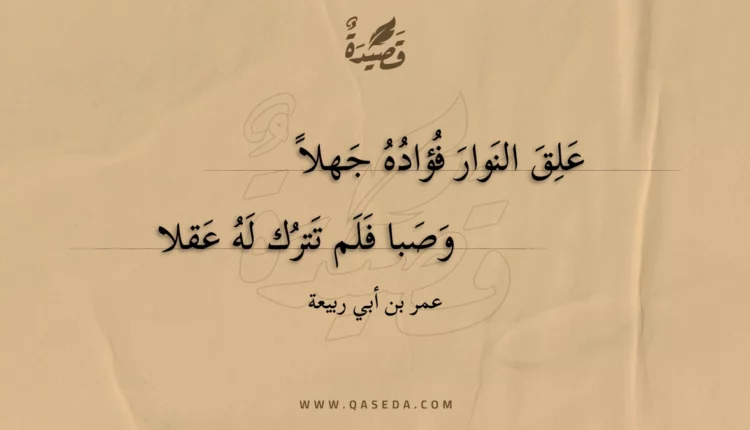 قَصِيدَةٌ
عَلِقَ النَوارَ فُؤادُهُ جَهلاً
وَصَبا فَلَم تَترُك لَهُ عَقلا
عمر بن أبي ربيعة
WWW.QASEDA.COM